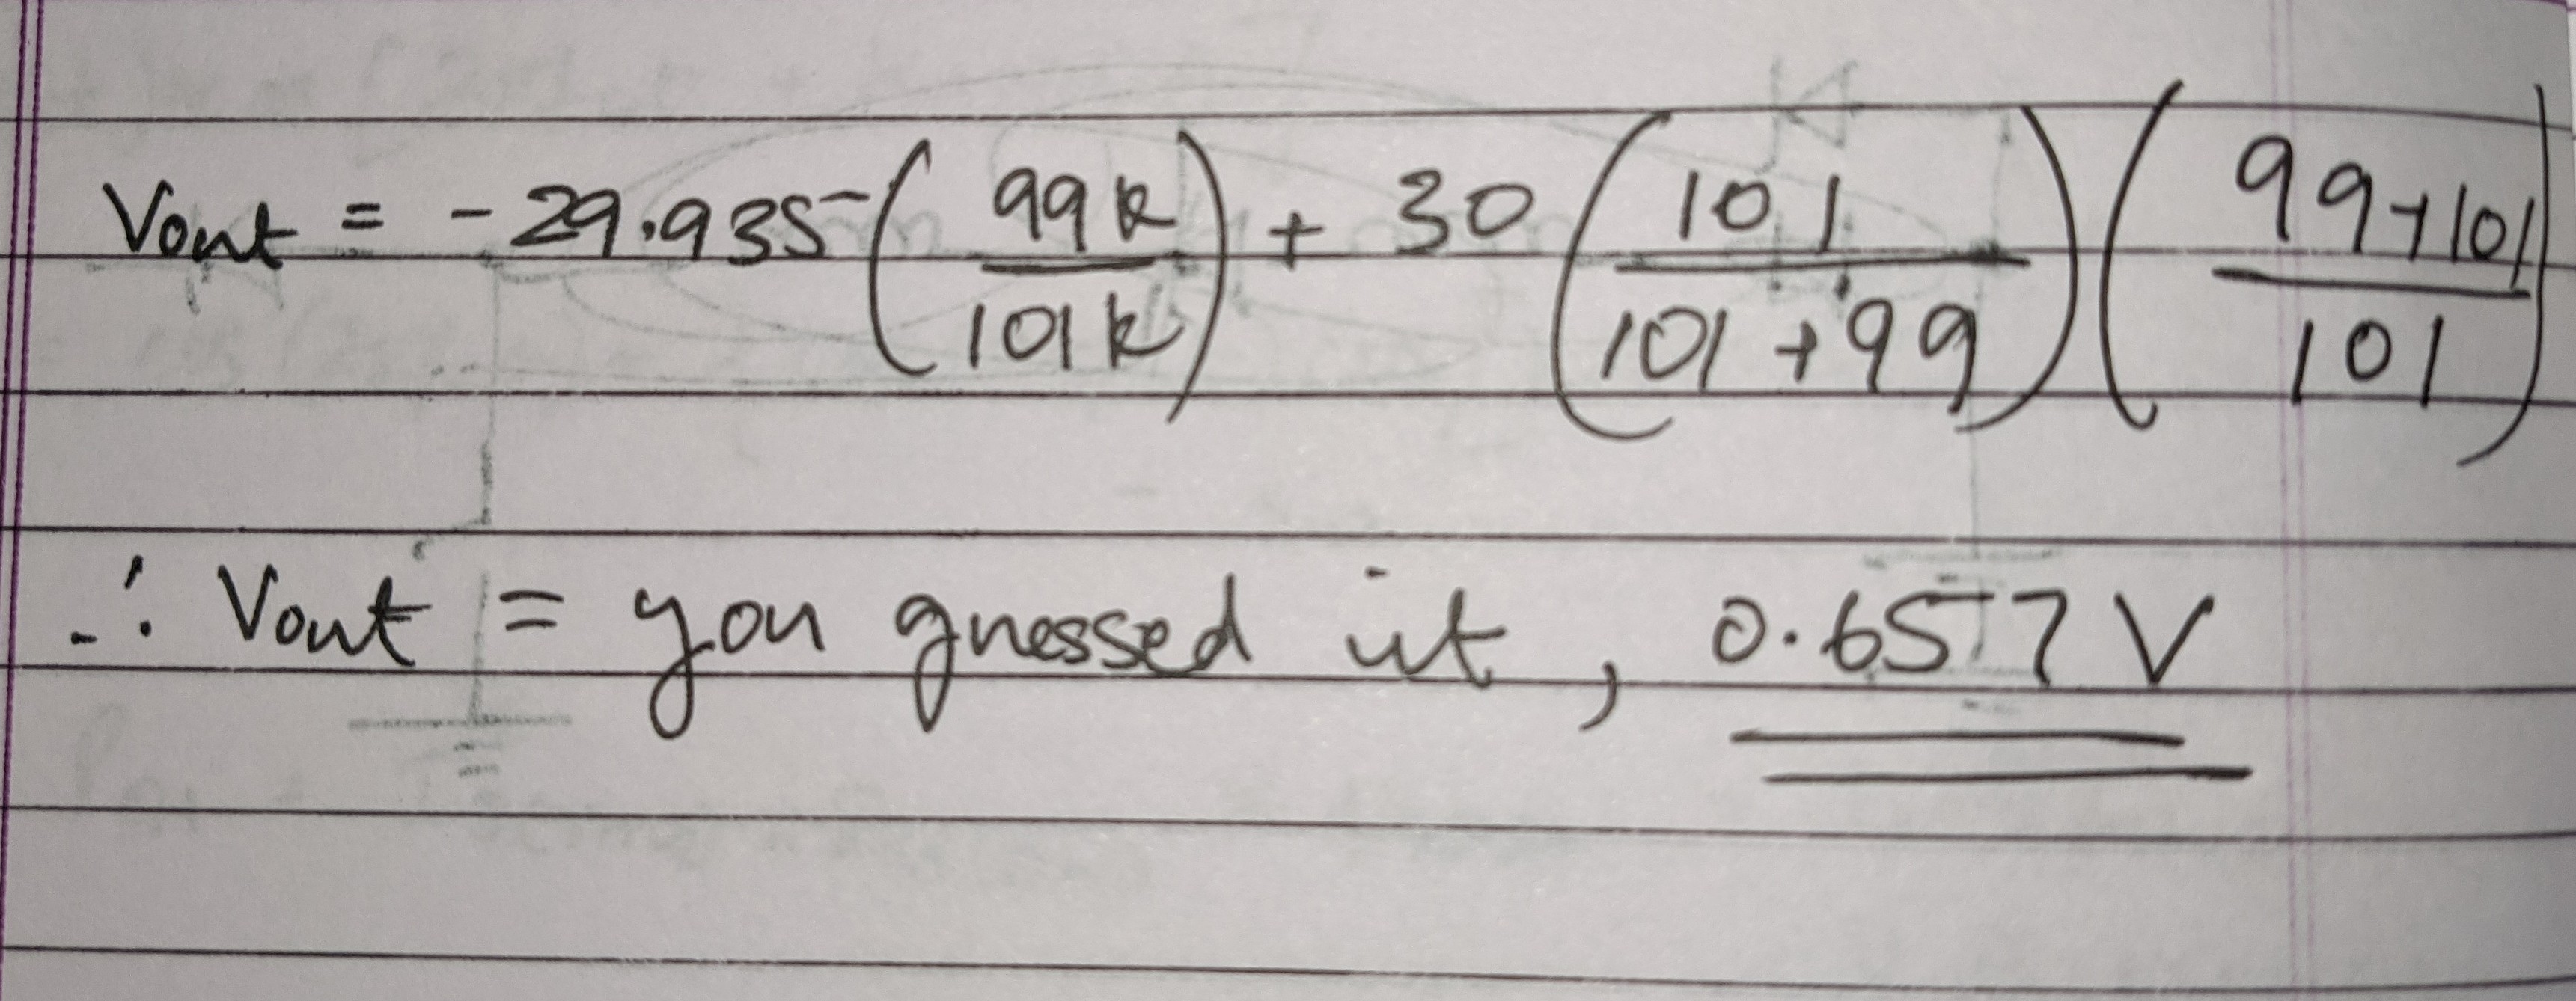 Vout = -29.935 (99k/101k) + 30 (101/(101+99)) ((99+101)/101)
∴ Vout = you guessed it, 0.657 V